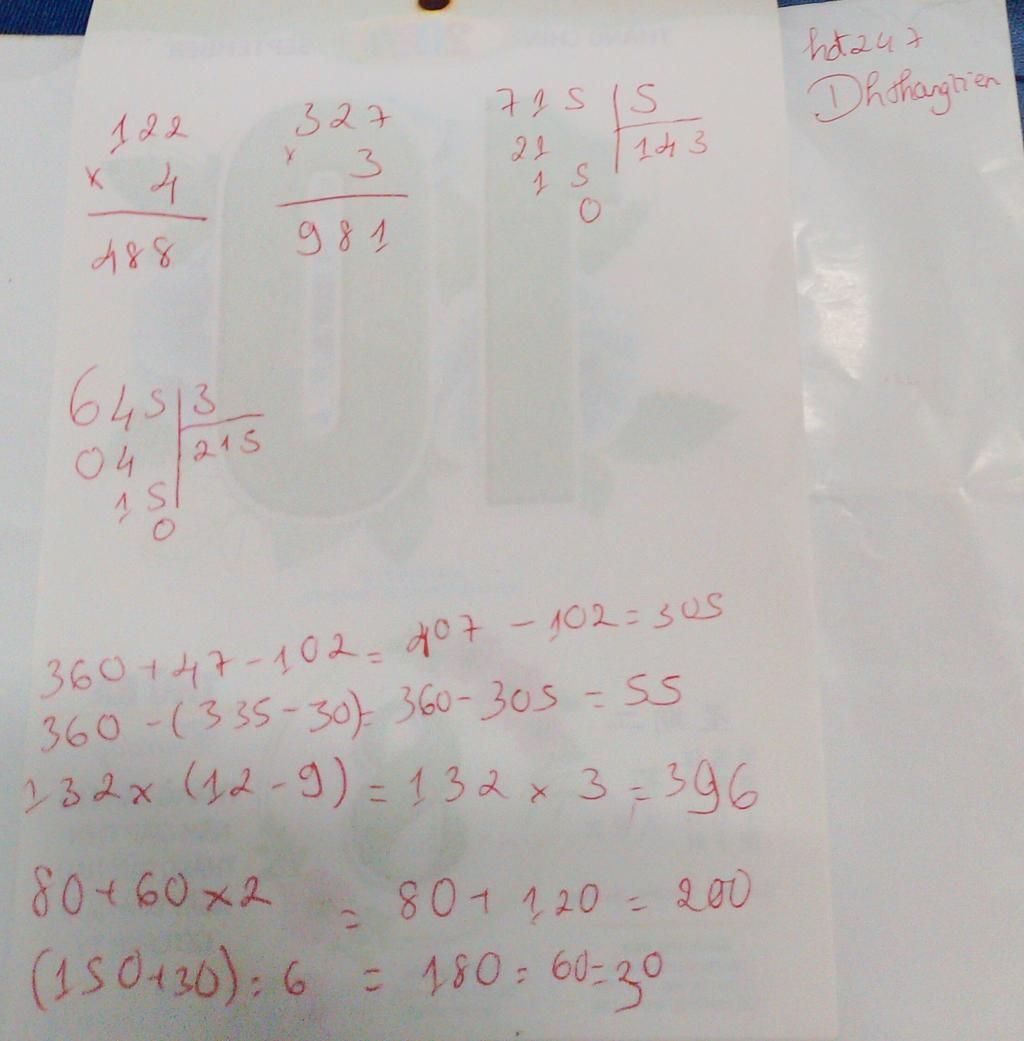 hdt247
Dhthangtien
122
× 4
488
327
× 3
981
715 | 5
21 | 143
15
0
645 | 3
04 | 215
15
0
360 + 47 - 102 = 407 - 102 = 305
360 - (335 - 30) = 360 - 305 = 55
132 × (12 - 9) = 132 × 3 = 396
80 + 60 × 2 = 80 + 120 = 200
(150 + 30) : 6 = 180 : 60 = 30